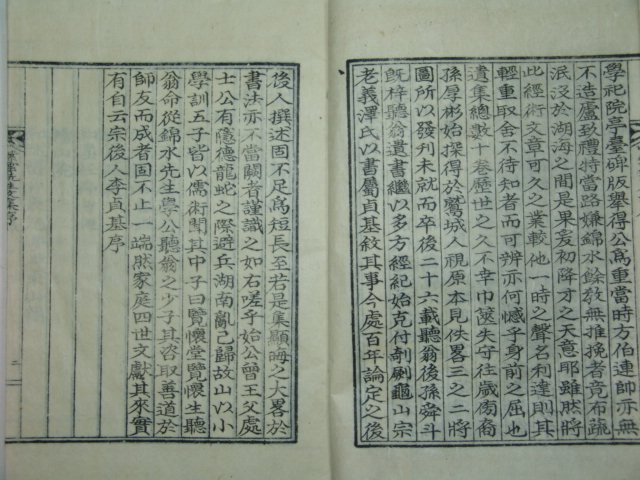 學祀院亭臺碑版擧得公爲重當時方伯連帥亦無
不造廬致禮特當路嫌錦水餘敎無推挽者竟布疏
泯沒於湖海之間是果爰初降才之天意耶雖然將
比經術文章可久之業較他一時之聲名利達則其
輕重取舍不待知者而可辨亦何憾乎身前之屈也
遺集總數十卷歷世之久不幸巾篋失守往歲傍裔
孫厚彬始採得於鷲城人視原本見佚畧三之二將
圖所以發刋未就而卒後二十六載聽翁後孫舜斗
旣梓聽翁遺書繼以多方經紀始克付剞劂龜山宗
老義澤氏以書屬貞基敍其事今處百年論定之後
後人撰述固不足爲短長至若是集顯晦之大畧於
書法亦不當闕者謹識之如右嗟乎始公曾王父處
士公有隱德龍蛇之際避兵湖南亂已歸故山以小
學訓五子皆以儒術聞其中子曰覽懷堂覽懷生聽
翁命從錦水先生學公聽翁之少子其咨取善道於
師友而成者固不止一端然家庭四世文獻其來實
有自云宗後人李貞基序
序
二